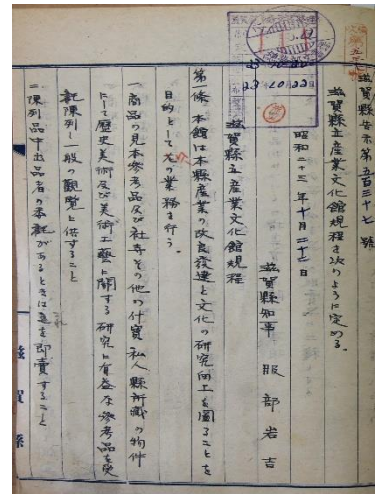 滋賀縣告示第五百三十七號
滋賀縣立産業文化館規程を次のように定める。
昭和二十三年十月二十二日
滋賀縣知事 服部岩吉
滋賀縣立産業文化館規程
第一條 本館は本縣産業の改良発達と文化の研究向上を圖ることを
目的として左の業務を行う。
一、商品の見本参考品及び社寺その他の什寳私人縣所藏の物件
にして歴史美術及び美術工藝に関する研究に有益な参考品を受
託陳列し一般の観覧に供すること
二、陳列品中出品者の委託があるときは之を即賣すること
滋賀縣
23.10.22